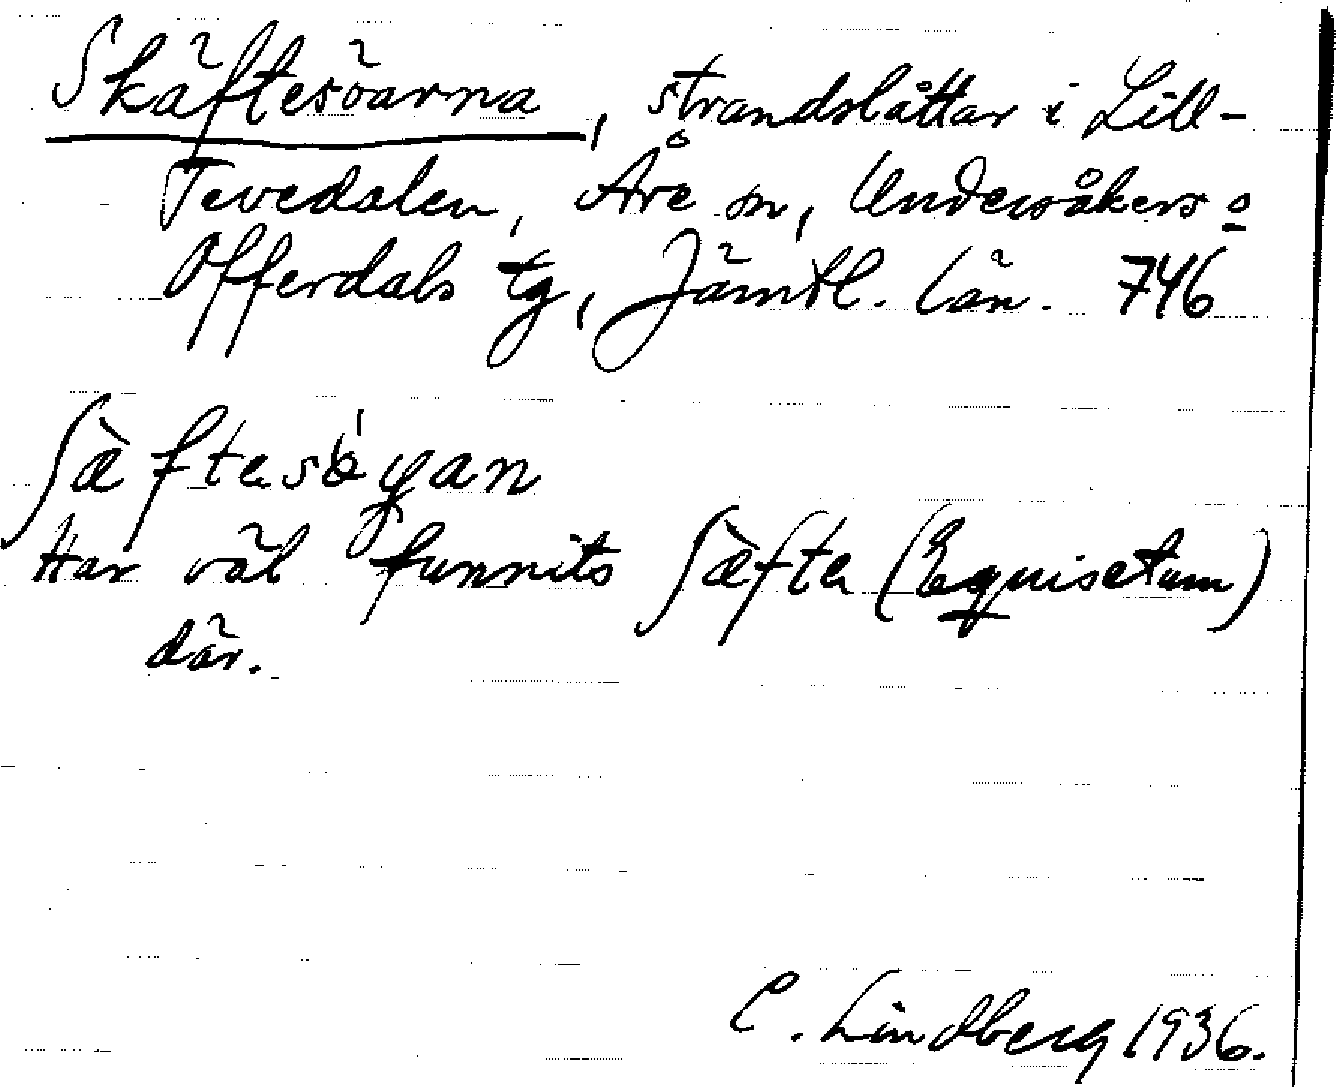 Skäftesöarna, strandslåttar i Lill-
Tevedalen, Åre sn, Undersåkers o
Offerdals tg, Jämtl. län. 746
ʃæ̀ftesǿyan
Har väl funnits ʃæ̀fte (Equisetum)
där.
C. Lindberg 1936.